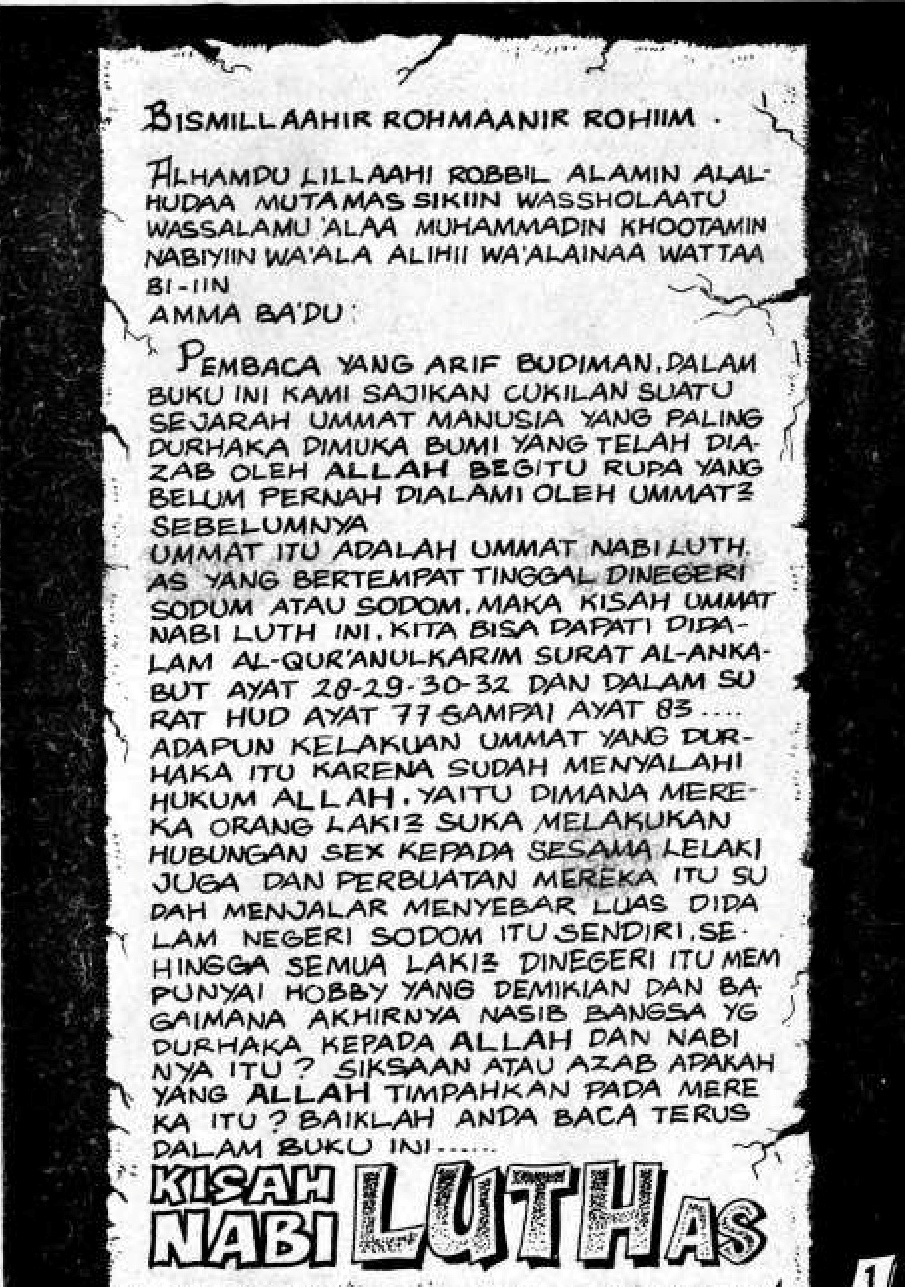 BISMILLAAHIR ROHMAANIR ROHIIM .
ALHAMDU LILLAAHI ROBBIL ALAMIN ALAL-
HUDAA MUTAMAS SIKIIN WASSHOLAATU
WASSALAMU 'ALAA MUHAMMADIN KHOOTAMIN
NABIYIIN WA'ALA ALIHII WA'ALAINAA WATTAA
BI-IIN
AMMA BA'DU :
PEMBACA YANG ARIF BUDIMAN, DALAM
BUKU INI KAMI SAJIKAN CUKILAN SUATU
SEJARAH UMMAT MANUSIA YANG PALING
DURHAKA DIMUKA BUMI YANG TELAH DIA-
ZAB OLEH ALLAH BEGITU RUPA YANG
BELUM PERNAH DIALAMI OLEH UMMAT2
SEBELUMNYA
UMMAT ITU ADALAH UMMAT NABI LUTH.
AS YANG BERTEMPAT TINGGAL DINEGERI
SODUM ATAU SODOM. MAKA KISAH UMMAT
NABI LUTH INI, KITA BISA DAPATI DIDA-
LAM AL-QUR'ANULKARIM SURAT AL-ANKA-
BUT AYAT 28-29-30-32 DAN DALAM SU
RAT HUD AYAT 77 SAMPAI AYAT 83 ....
ADAPUN KELAKUAN UMMAT YANG DUR-
HAKA ITU KARENA SUDAH MENYALAHI
HUKUM ALLAH. YAITU DIMANA MERE-
KA ORANG LAKI2 SUKA MELAKUKAN
HUBUNGAN SEX KEPADA SESAMA LELAKI
JUGA DAN PERBUATAN MEREKA ITU SU
DAH MENJALAR MENYEBAR LUAS DIDA
LAM NEGERI SODOM ITU SENDIRI. SE-
HINGGA SEMUA LAKI2 DINEGERI ITU MEM
PUNYAI HOBBY YANG DEMIKIAN DAN BA
GAIMANA AKHIRNYA NASIB BANGSA YG
DURHAKA KEPADA ALLAH DAN NABI
NYA ITU ? SIKSAAN ATAU AZAB APAKAH
YANG ALLAH TIMPAHKAN PADA MERE
KA ITU ? BAIKLAH ANDA BACA TERUS
DALAM BUKU INI ......
KISAH
NABI LUTH AS
1